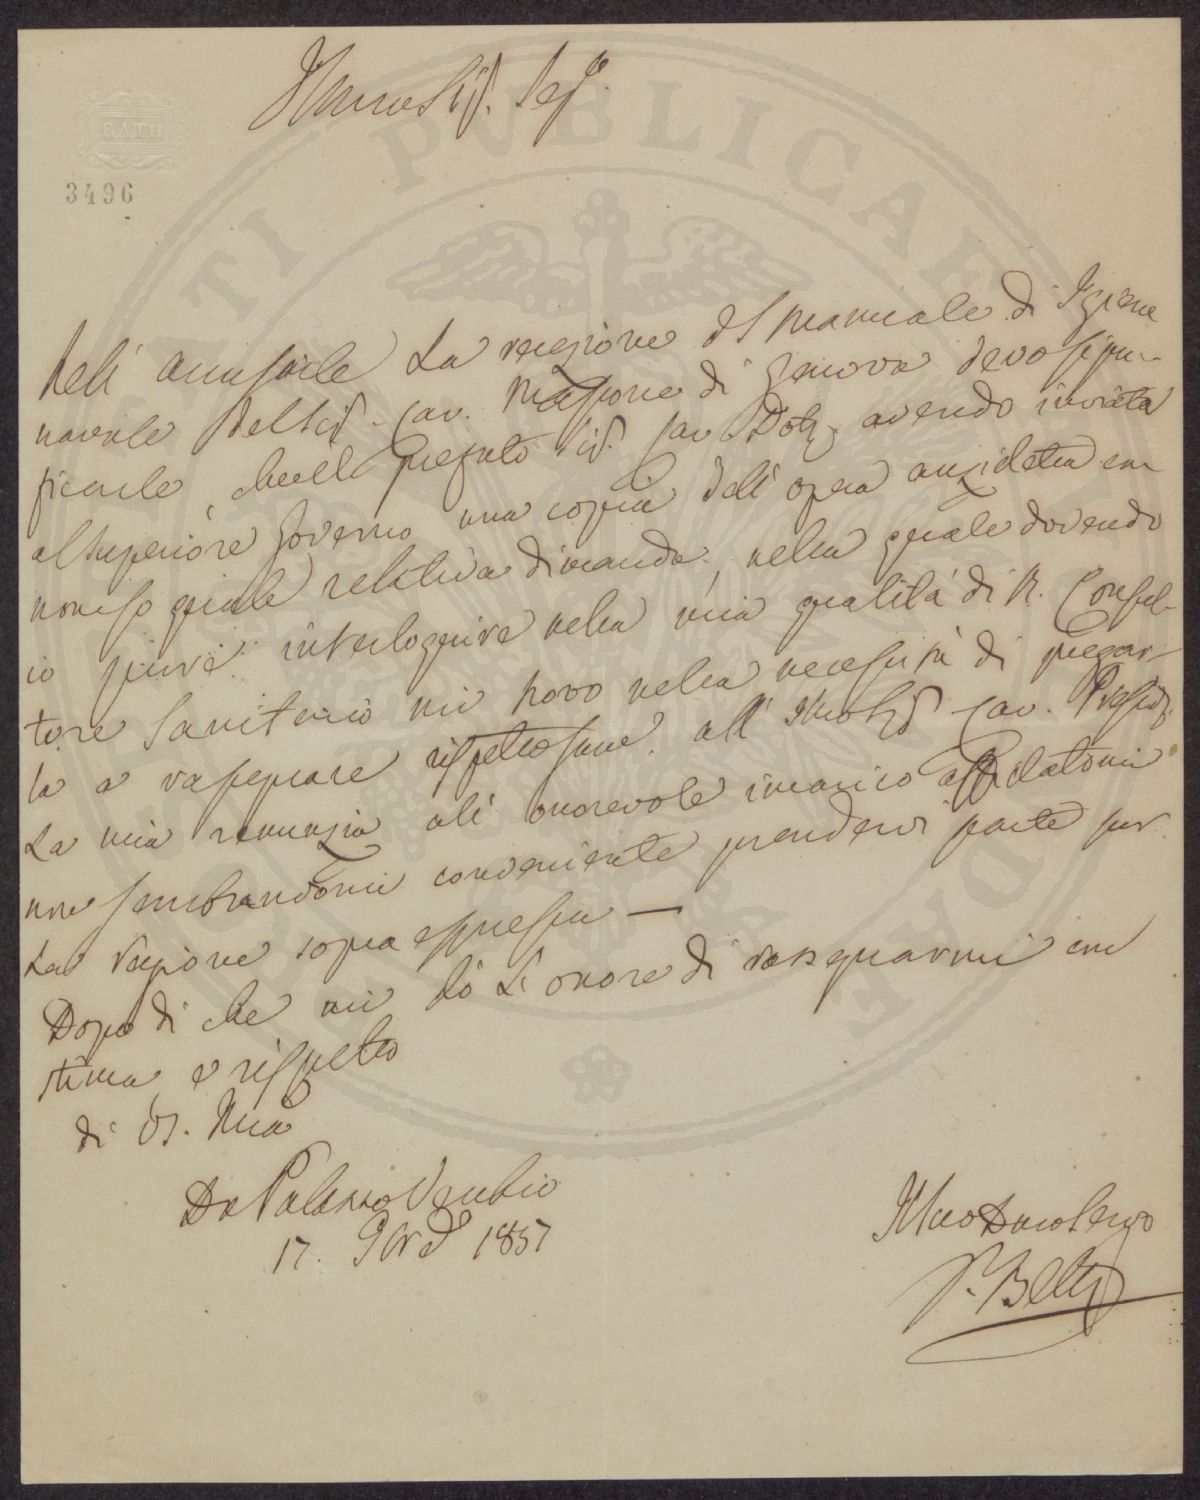 Illmo Sig. Seg.
BATH
3496
Nell' accusarle la recezione del manuale di Igiene
navale del Sig. Cav. Massone di Genova devo signi-
ficarle, che il prefato Sig. Cav. Dott. avendo inviata
al Superiore Governo una copia dell' opera anzidetta con
non so quale relativa dimanda, nella quale dovendo
io pure interloquire nella mia qualità di R. Consul-
tore Sanitario mi trovo nella necessità di pregar-
la a rassegnare rispettosame. all' Illmo Sig. Cav. Presid.
la mia renunzia all' onorevole incarico affidatomi
non sembrandomi conveniente prendervi parte per
la ragione sopra espressa —
Dopo di che mi dò l' onore di rassegnarmi con
stima e rispetto
di VS. Illma
Da Palazzo Vecchio
17. 9bre 1857
Devo Servo
P. Betti
PUBLICAE